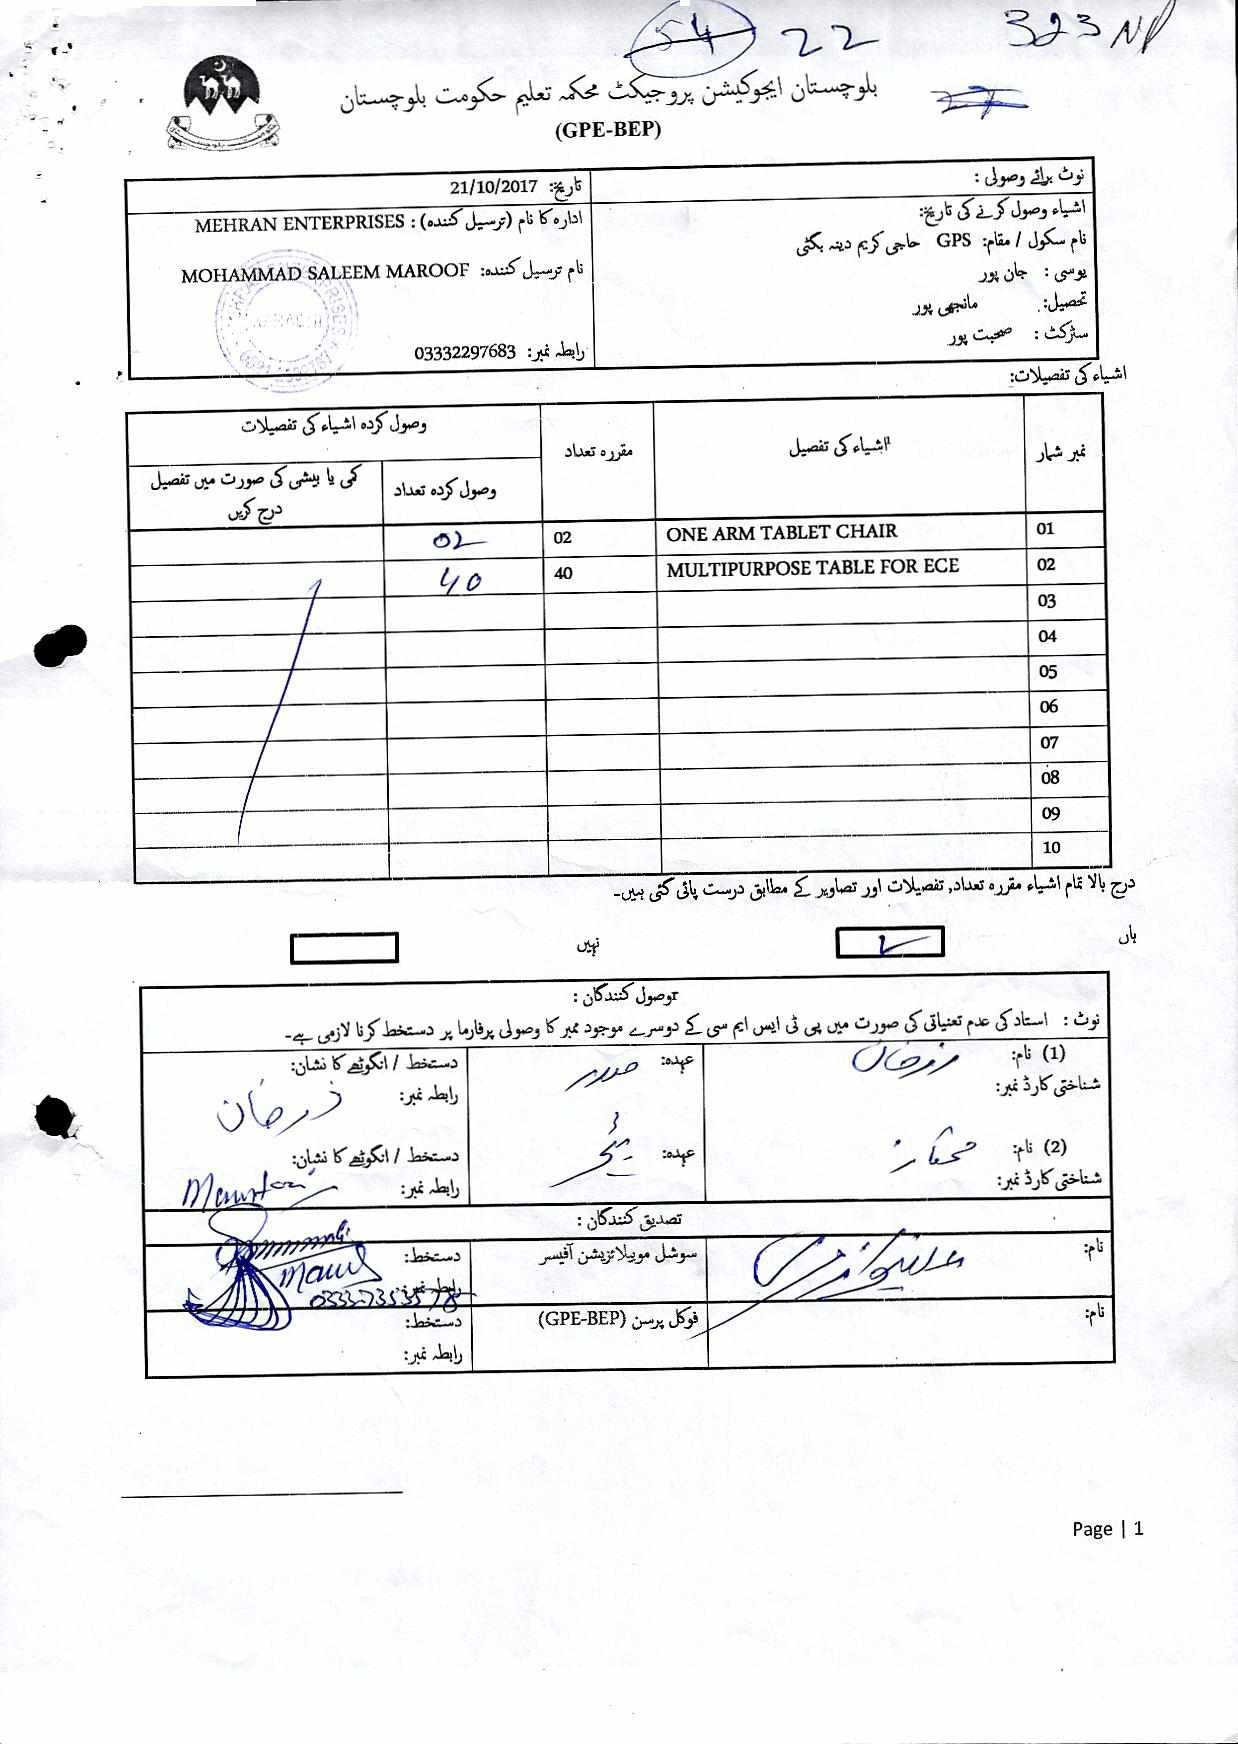 54 22 323 NP
27
بلوچستان ایجوکیشن پروجیکٹ محکمہ تعلیم حکومت بلوچستان
(GPE-BEP)
نوٹ برائے وصولی :
اشیاء وصول کرنے کی تاریخ:
نام سکول / مقام: GPS حاجی کریم دینہ بگٹی
یوسی : جان پور
تحصیل: مانجھی پور
سٹرکٹ : صحبت پور
تاریخ: 21/10/2017
ادارہ کا نام (ترسیل کنندہ) : MEHRAN ENTERPRISES
نام ترسیل کنندہ: MOHAMMAD SALEEM MAROOF
رابطہ نمبر: 03332297683
اشیاء کی تفصیلات:
نمبر شمار اشیاء کی تفصیل مقررہ تعداد وصول کردہ اشیاء کی تفصیلات
وصول کردہ تعداد کمی یا بیشی کی صورت میں تفصیل درج کریں
01 ONE ARM TABLET CHAIR 02 02
02 MULTIPURPOSE TABLE FOR ECE 40 40
03
04
05
06
07
08
09
10
درج بالا تمام اشیاء مقررہ تعداد, تفصیلات اور تصاویر کے مطابق درست پائی گئی ہیں۔
ہاں نہیں
وصول کنندگان :
نوٹ : استاد کی عدم تعنیاتی کی صورت میں پی ٹی ایس ایم سی کے دوسرے موجود ممبر کا وصولی پرفارما پر دستخط کرنا لازمی ہے۔
(1) نام: زرخان عہدہ: صدر دستخط / انگوٹھے کا نشان:
شناختی کارڈ نمبر: رابطہ نمبر: زرخان
(2) نام: عہدہ: ٹیچر دستخط / انگوٹھے کا نشان:
شناختی کارڈ نمبر: رابطہ نمبر:
تصدیق کنندگان :
نام: سوشل موبیلائزیشن آفیسر دستخط:
رابطہ نمبر:
نام: فوکل پرسن (GPE-BEP) دستخط:
رابطہ نمبر:
Page | 1